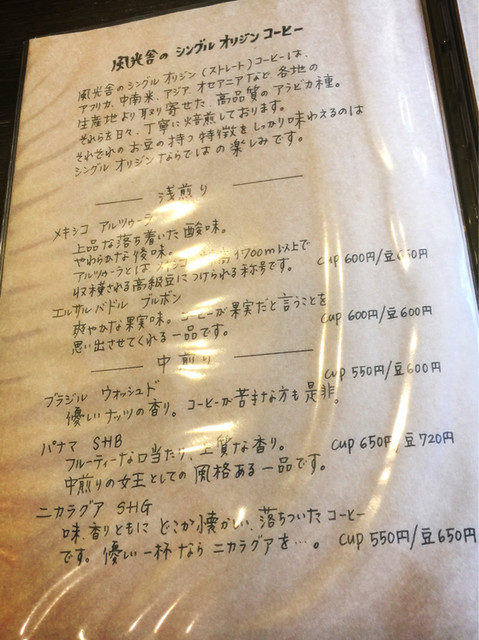 風光舎の シングル オリジン コーヒー
風光舎のシングル オリジン(ストレート)コーヒーは、
アフリカ、中南米、アジア、オセアニアなど、各地の
生産地より取り寄せた、高品質のアラビカ種。
それらを日々、丁寧に焙煎しております。
それぞれのお豆の持つ特徴をしっかり味わえるのは
シングル オリジンならではの楽しみです。
浅煎り
メキシコ アルツゥーラ
上品な落ち着いた酸味。
やわらかな後味。
アルツゥーラとは、メキシコ 1700m以上で
収穫される高級豆につけられる称号です。 cup 600円/豆650円
エルサルバドル ブルボン
爽やかな果実味。コーヒーが果実だと言うことを
思い出させてくれる一品です。 cup 600円/豆600円
中煎り
ブラジル ウォッシュド cup 550円/豆600円
優しいナッツの香り。コーヒーが苦手な方も是非。
パナマ SHB
フルーティーな口当たり、上質な香り。 cup 650円/豆720円
中煎りの女王としての風格ある一品です。
ニカラグア SHG
味、香りともに どこか懐かしい、落ちついたコーヒー
です。優しい一杯なら ニカラグアを…。 cup 550円/豆650円